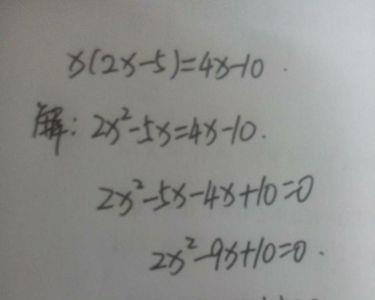 x(2x-5)=4x-10.
解: 2x²-5x=4x-10.
2x²-5x-4x+10=0
2x²-9x+10=0.